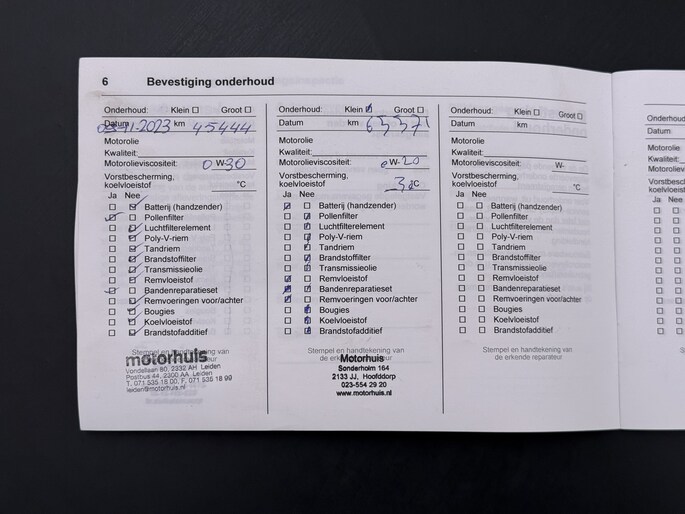 6 Bevestiging onderhoud
Onderhoud: Klein ☐ Groot ☐
Datum 03-11-2023 km 45444
Motorolie
Kwaliteit:
Motorolieviscositeit: 0 W-30
Vorstbescherming,
koelvloeistof °C
Ja Nee
☐ ☑ Batterij (handzender)
☑ ☐ Pollenfilter
☐ ☑ Luchtfilterelement
☐ ☑ Poly-V-riem
☐ ☑ Tandriem
☐ ☑ Brandstoffilter
☐ ☑ Transmissieolie
☐ ☑ Remvloeistof
☑ ☐ Bandenreparatieset
☐ ☑ Remvoeringen voor/achter
☐ ☑ Bougies
☐ ☑ Koelvloeistof
☐ ☑ Brandstofadditief
Stempel en handtekening van
motorhuis
Vondellaan 80, 2332 AH Leiden
Postbus 44, 2300 AA Leiden
T. 071 535 18 00, F. 071 535 18 99
leiden@motorhuis.nl
Onderhoud: Klein ☑ Groot ☐
Datum km 63371
Motorolie
Kwaliteit:
Motorolieviscositeit: 0 W-20
Vorstbescherming,
koelvloeistof °C
Ja Nee
☑ ☐ Batterij (handzender)
☐ ☑ Pollenfilter
☐ ☑ Luchtfilterelement
☐ ☑ Poly-V-riem
☐ ☑ Tandriem
☐ ☑ Brandstoffilter
☐ ☑ Transmissieolie
☑ ☐ Remvloeistof
☑ ☐ Bandenreparatieset
☑ ☐ Remvoeringen voor/achter
☐ ☑ Bougies
☐ ☑ Koelvloeistof
☐ ☑ Brandstofadditief
Stempel en handtekening van
Motorhuis
Sonderholm 164
2133 JJ, Hoofddorp
023-554 29 20
www.motorhuis.nl
Onderhoud: Klein ☐ Groot ☐
Datum km
Motorolie
Kwaliteit:
Motorolieviscositeit: W-
Vorstbescherming,
koelvloeistof °C
Ja Nee
☐ ☐ Batterij (handzender)
☐ ☐ Pollenfilter
☐ ☐ Luchtfilterelement
☐ ☐ Poly-V-riem
☐ ☐ Tandriem
☐ ☐ Brandstoffilter
☐ ☐ Transmissieolie
☐ ☐ Remvloeistof
☐ ☐ Bandenreparatieset
☐ ☐ Remvoeringen voor/achter
☐ ☐ Bougies
☐ ☐ Koelvloeistof
☐ ☐ Brandstofadditief
Stempel en handtekening van
de erkende reparateur
Onderhoud:
Datum
Motorolie
Kwaliteit:
Ja Nee